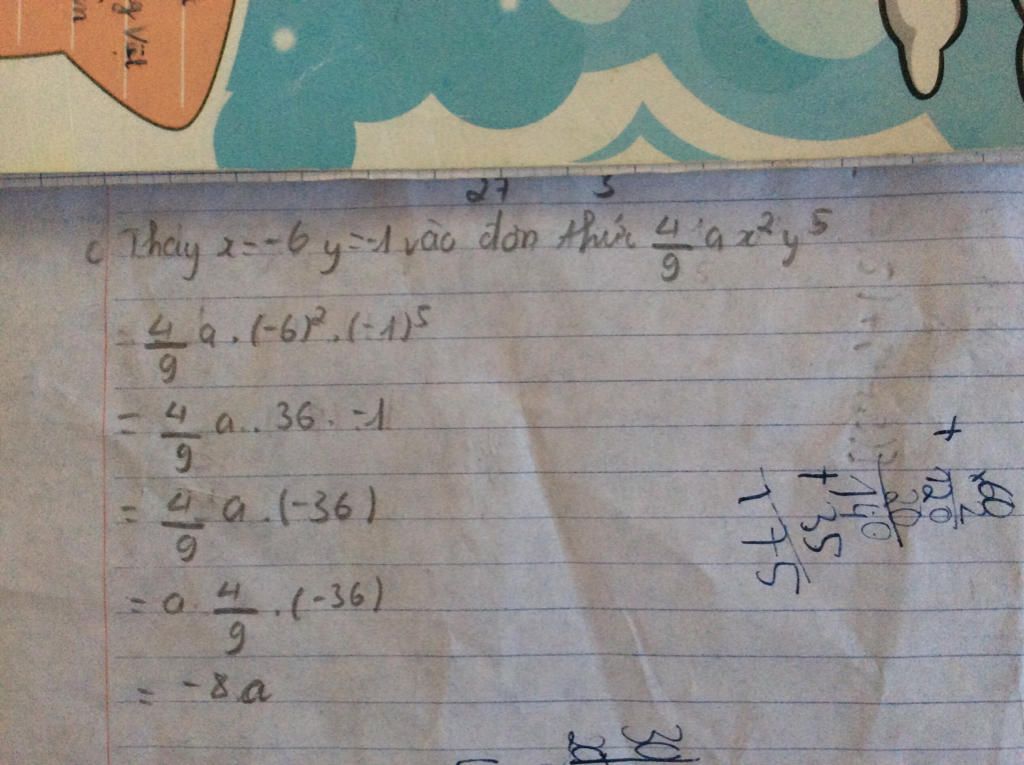 g Việt
27 5
c Thay x = -6 y = -1 vào đơn thức 4/9 a x² y⁵
= 4/9 a . (-6)² . (-1)⁵
= 4/9 a . . 36 . -1
= 4/9 a . (-36)
= a . 4/9 . (-36)
= -8 a
+ 120
20
140
+ 35
175
30